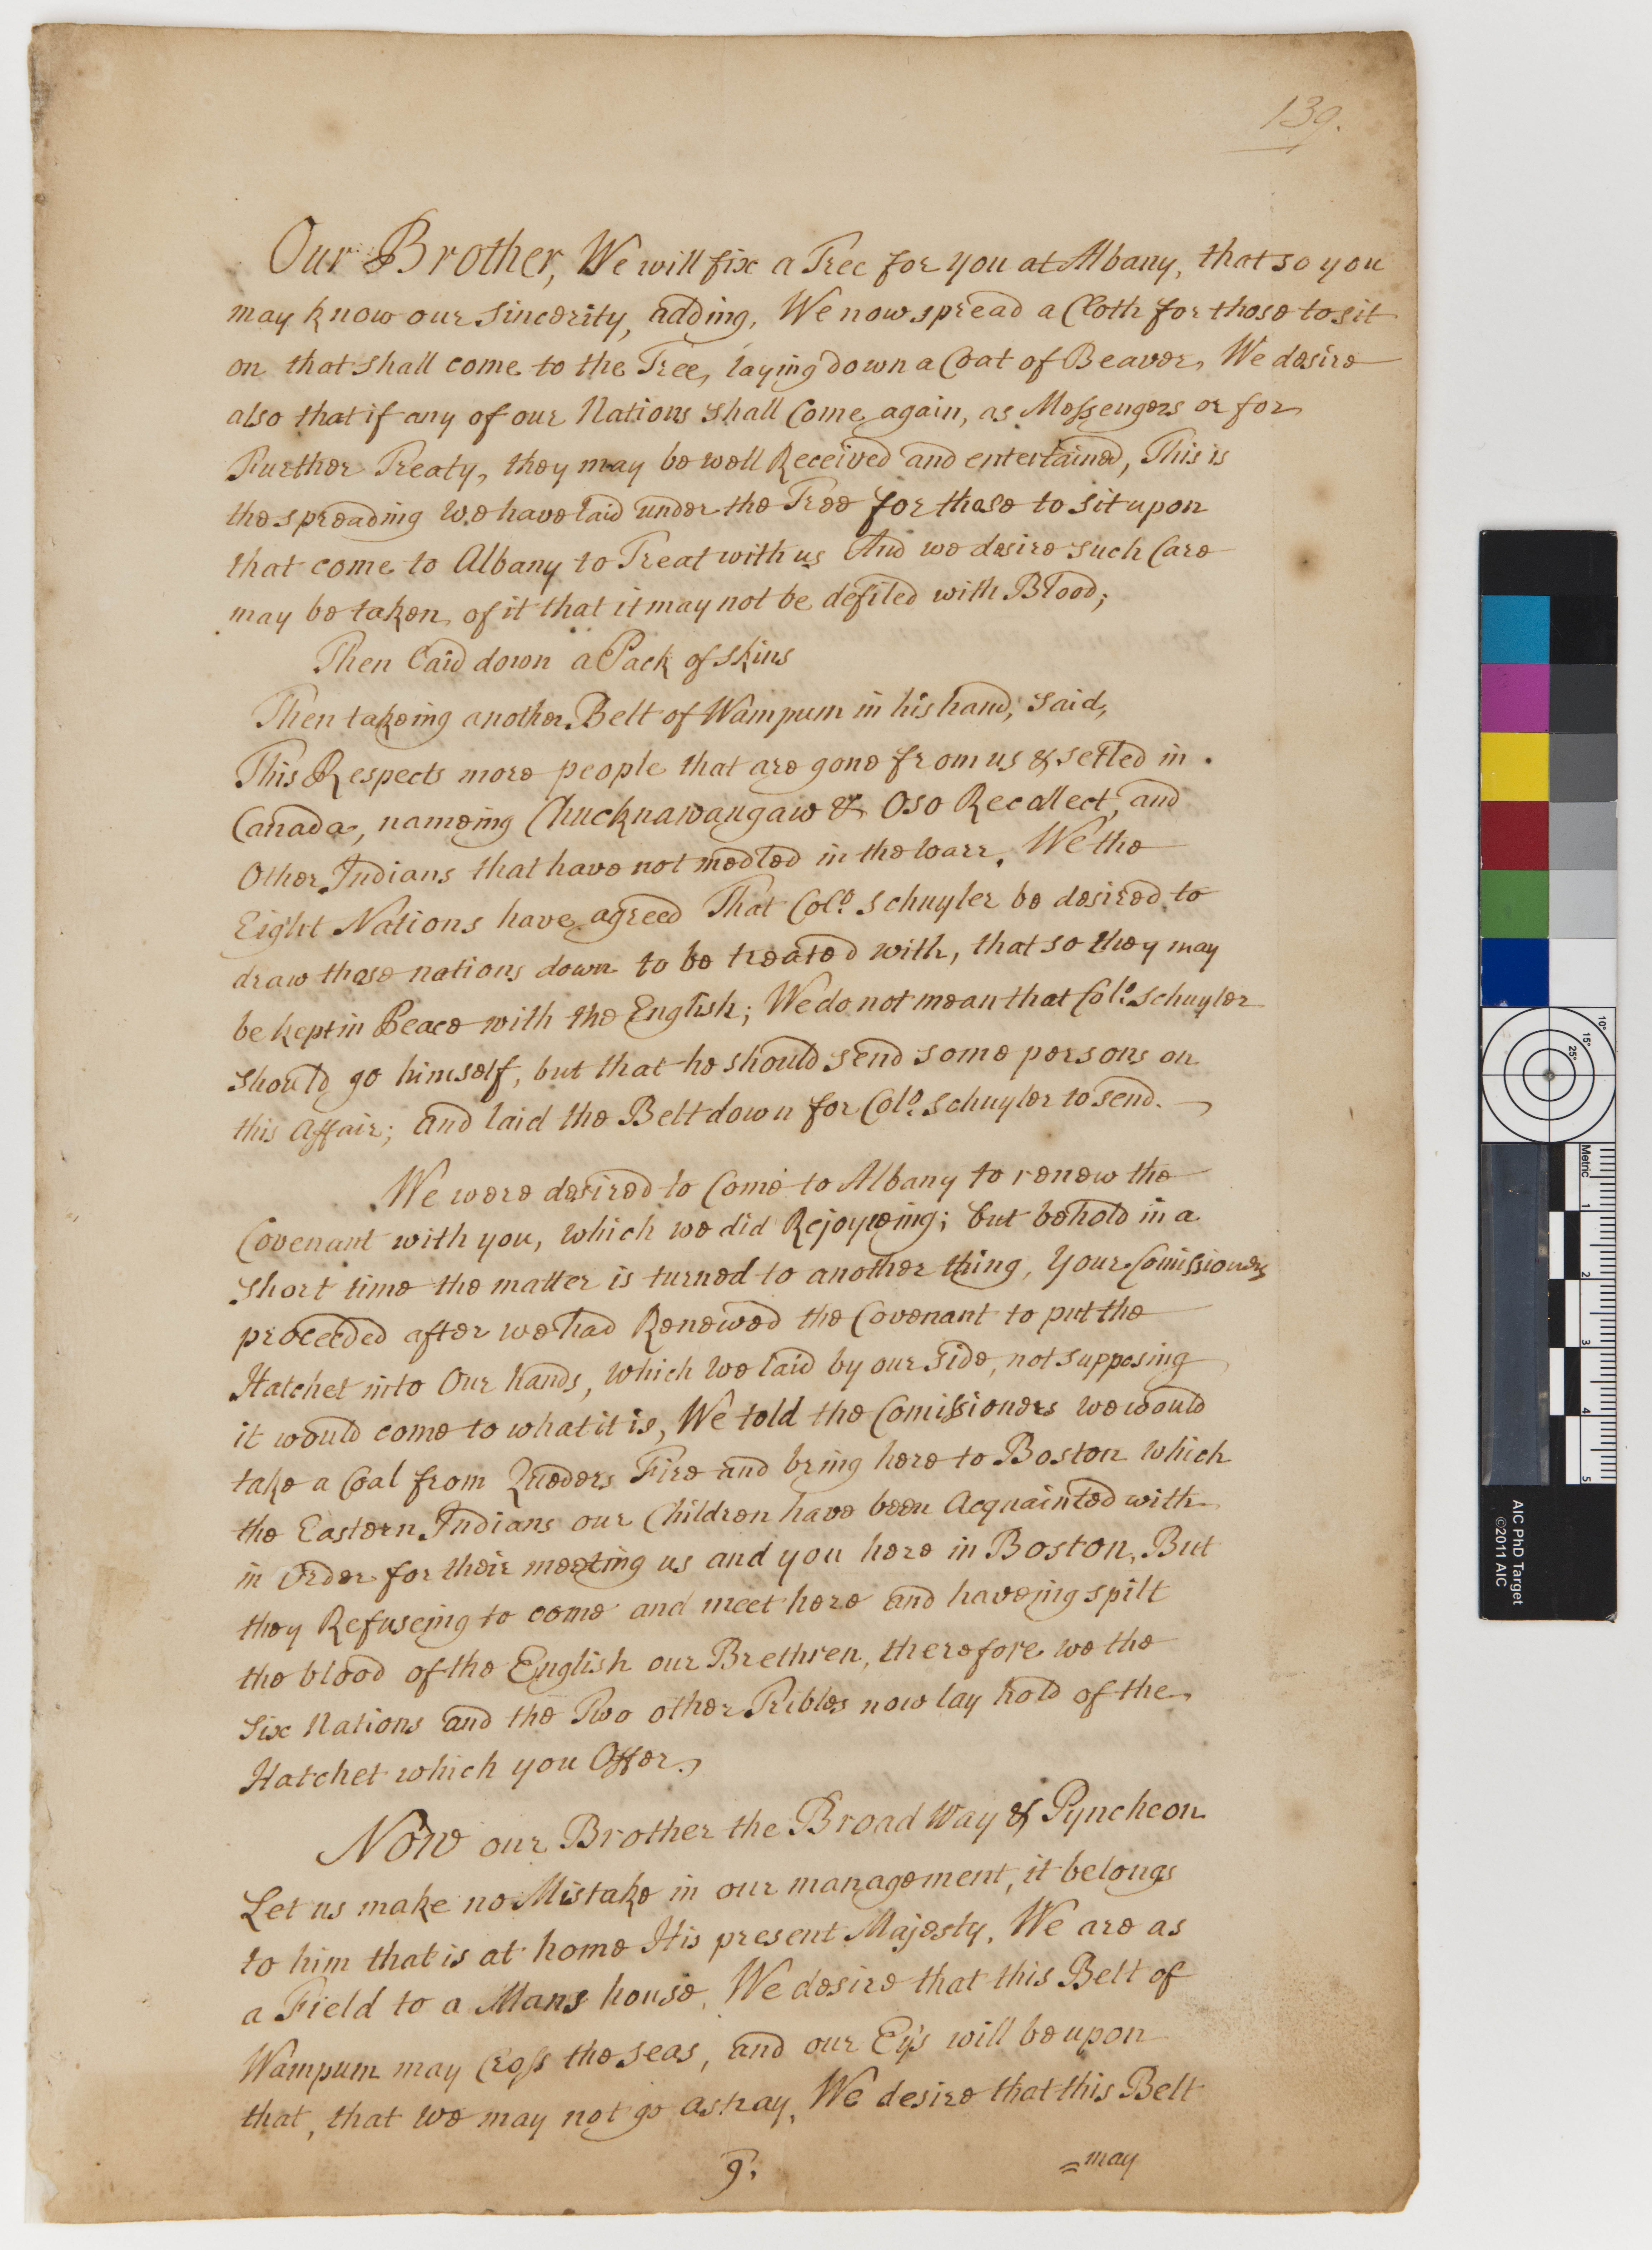 139.
Our Brother, We will fix a Tree for you at Albany, that so you
may know our sincerity, adding, We now spread a Cloth for those to sit
on that shall come to the Tree, laying down a Coat of Beaver, We desire
also that if any of our Nations shall Come again, as Messengers or for
Further Treaty, they may be well Received and entertained, This is
the spreading We have laid under the Tree for those to sit upon
that come to Albany to Treat with us And we desire such Care
may be taken of it that it may not be defiled with Blood;
Then laid down a Pack of skins
Then takeing another Belt of Wampum in his hand, said,
This Respects more people that are gone from us & setled in
Canada, nameing Chucknawaugaw & Oso Recallect, and
Other Indians that have not medled in the Warr. We the
Eight Nations have agreed That Colo. Schuyler be desired to
draw those nations down to be treated with, that so they may
be kept in Peace with the English; We do not mean that Colo. Schuyler
should go himself, but that he should send some persons on
this Affair; and laid the Belt down for Colo. Schuyler to send.
We were desired to Come to Albany to renew the
Covenant with you, which we did Rejoyceing; but behold in a
short time the matter is turned to another thing, Your Comissioners
proceeded after we had Renewed the Covenant to put the
Hatchet into Our hands, which We laid by our side, not supposing
it would come to what it is, We told the Comissioners we would
take a Coal from Queders Fire and bring here to Boston which
the Eastern Indians our Children have been Acquainted with
in Order for their meeting us and you here in Boston, But
they Refuseing to come and meet here and haveing spilt
the blood of the English our Brethren, therefore we the
Six Nations and the Two other Tribles now lay hold of the
Hatchet which you Offer.
Now our Brother the Broad Way & Pyncheon
Let us make no Mistake in our management, it belongs
to him that is at home His present Majesty, We are as
a Field to a Mans house, We desire that this Belt of
Wampum may Cross the seas, and our Eys will be upon
that, that we may not go astray, We desire that this Belt
9. =may
10°
15°
25°
Metric
1
2
3
4
5
AIC PhD Target
©2011 AIC